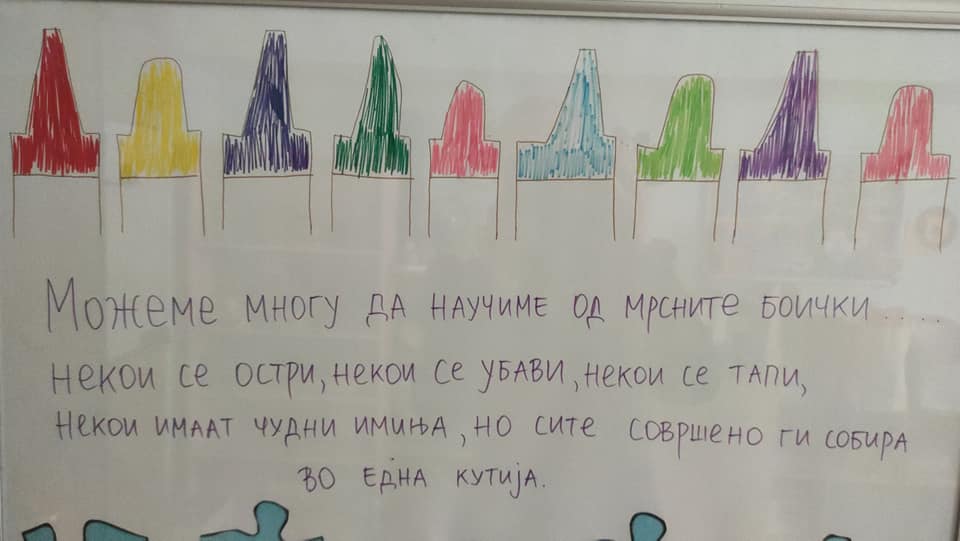 Можеме многу да научиме од мрсните боички.....
некои се остри, некои се убави, некои се тапи,
некои имаат чудни имиња, но сите совршено ги собира
во една кутија.